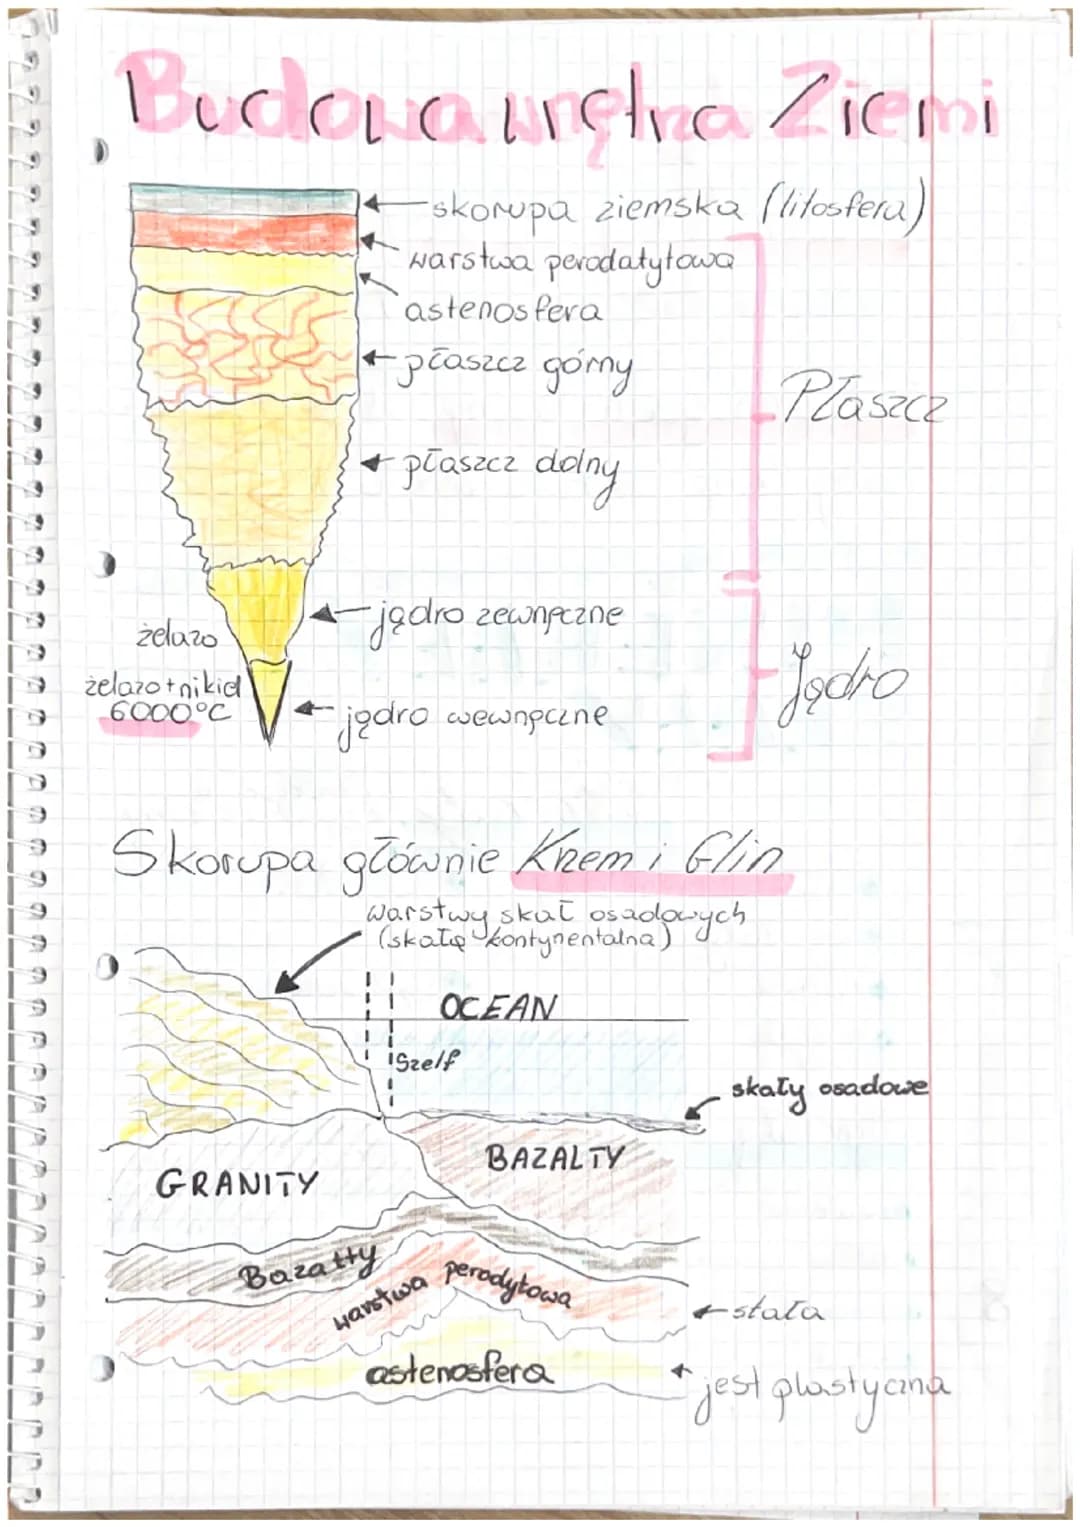 Budowa wnętrza Ziemi
skorupa ziemska (litosfera)
warstwa perodatytowa
astenosfera
płaszcz górny
Płaszcz
płaszcz dolny
jądro zewnęczne
żelazo
żelazo+nikiel
6000°C
jądro wewnęczne
Jądro
Skorupa głównie Krzem i Glin
warstwy skał osadowych
(skałę kontynentalna)
OCEAN
Szelf
skały osadowe
BAZALTY
GRANITY
Bazalty
warstwa perodytowa
stała
astenosfera
jest plastyczna